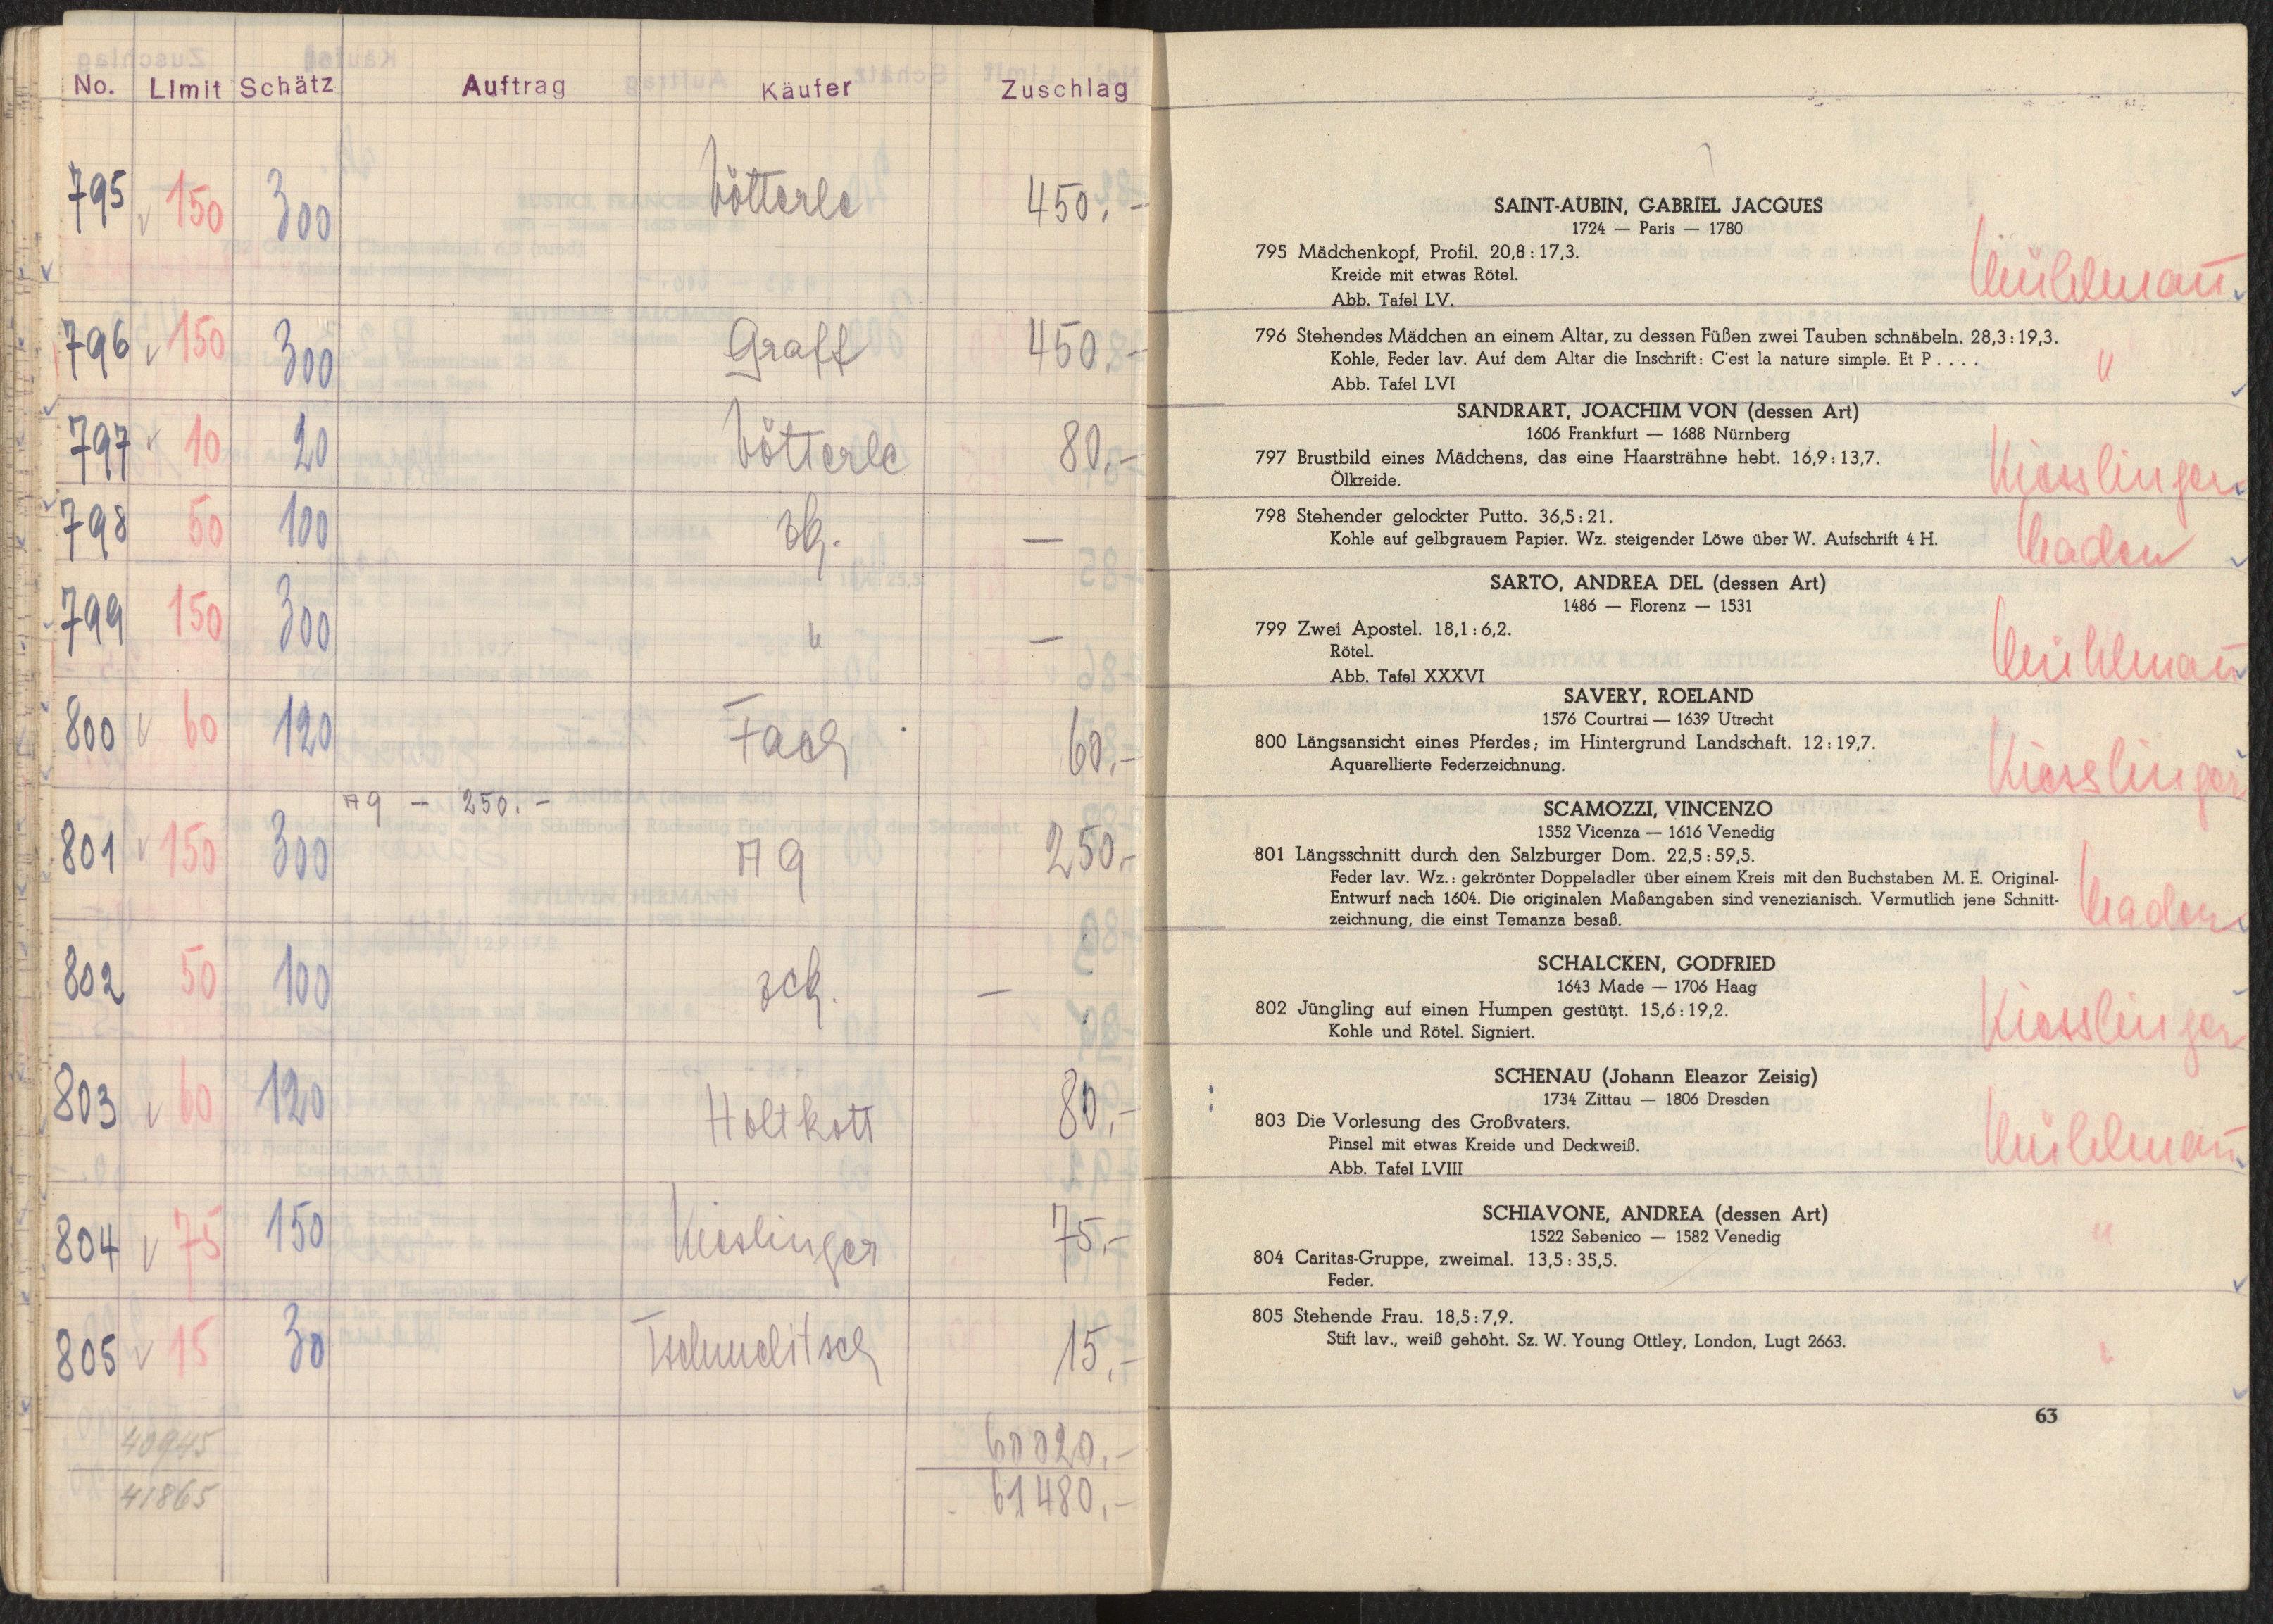 No. Limit Schätz Auftrag Käufer Zuschlag
795 150 300 Wötterle 450.-
796 150 300 Graff 450.-
797 10 20 Wötterle 80.-
798 50 100 zk. —
799 150 300 " —
800 60 120 Fach 60.-
A9 - 250.-
801 150 300 A9 250.-
802 50 100 zck. —
803 60 120 Holtkott 80.-
804 75 150 Kieslinger 75.-
805 15 30 15.-
40945 60020.-
41865 61480.-
SAINT-AUBIN, GABRIEL JACQUES
1724 — Paris — 1780
795 Mädchenkopf, Profil. 20,8 : 17,3.
Kreide mit etwas Rötel.
Mühlmann
Abb. Tafel LV.
796 Stehendes Mädchen an einem Altar, zu dessen Füßen zwei Tauben schnäbeln. 28,3 : 19,3.
Kohle, Feder lav. Auf dem Altar die Inschrift: C'est la nature simple. Et P . . . . "
Abb. Tafel LVI
SANDRART, JOACHIM VON (dessen Art)
1606 Frankfurt — 1688 Nürnberg
797 Brustbild eines Mädchens, das eine Haarsträhne hebt. 16,9 : 13,7. Kiesslinger
Ölkreide.
798 Stehender gelockter Putto. 36,5 : 21.
Kohle auf gelbgrauem Papier. Wz. steigender Löwe über W. Aufschrift 4 H.
SARTO, ANDREA DEL (dessen Art)
1486 — Florenz — 1531
799 Zwei Apostel. 18,1 : 6,2.
Rötel. Mühlmann
Abb. Tafel XXXVI
SAVERY, ROELAND
1576 Courtrai — 1639 Utrecht
800 Längsansicht eines Pferdes; im Hintergrund Landschaft. 12 : 19,7.
Aquarellierte Federzeichnung. Kiesslinger
SCAMOZZI, VINCENZO
1552 Vicenza — 1616 Venedig
801 Längsschnitt durch den Salzburger Dom. 22,5 : 59,5.
Feder lav. Wz.: gekrönter Doppeladler über einem Kreis mit den Buchstaben M. E. Original-
Entwurf nach 1604. Die originalen Maßangaben sind venezianisch. Vermutlich jene Schnitt-
zeichnung, die einst Temanza besaß.
SCHALCKEN, GODFRIED
1643 Made — 1706 Haag
802 Jüngling auf einen Humpen gestützt. 15,6 : 19,2. Kiesslinger
Kohle und Rötel. Signiert.
SCHENAU (Johann Eleazor Zeisig)
1734 Zittau — 1806 Dresden
803 Die Vorlesung des Großvaters.
Pinsel mit etwas Kreide und Deckweiß. Mühlmann
Abb. Tafel LVIII
SCHIAVONE, ANDREA (dessen Art)
1522 Sebenico — 1582 Venedig "
804 Caritas-Gruppe, zweimal. 13,5 : 35,5.
Feder.
805 Stehende Frau. 18,5 : 7,9.
Stift lav., weiß gehöht. Sz. W. Young Ottley, London, Lugt 2663. "
63